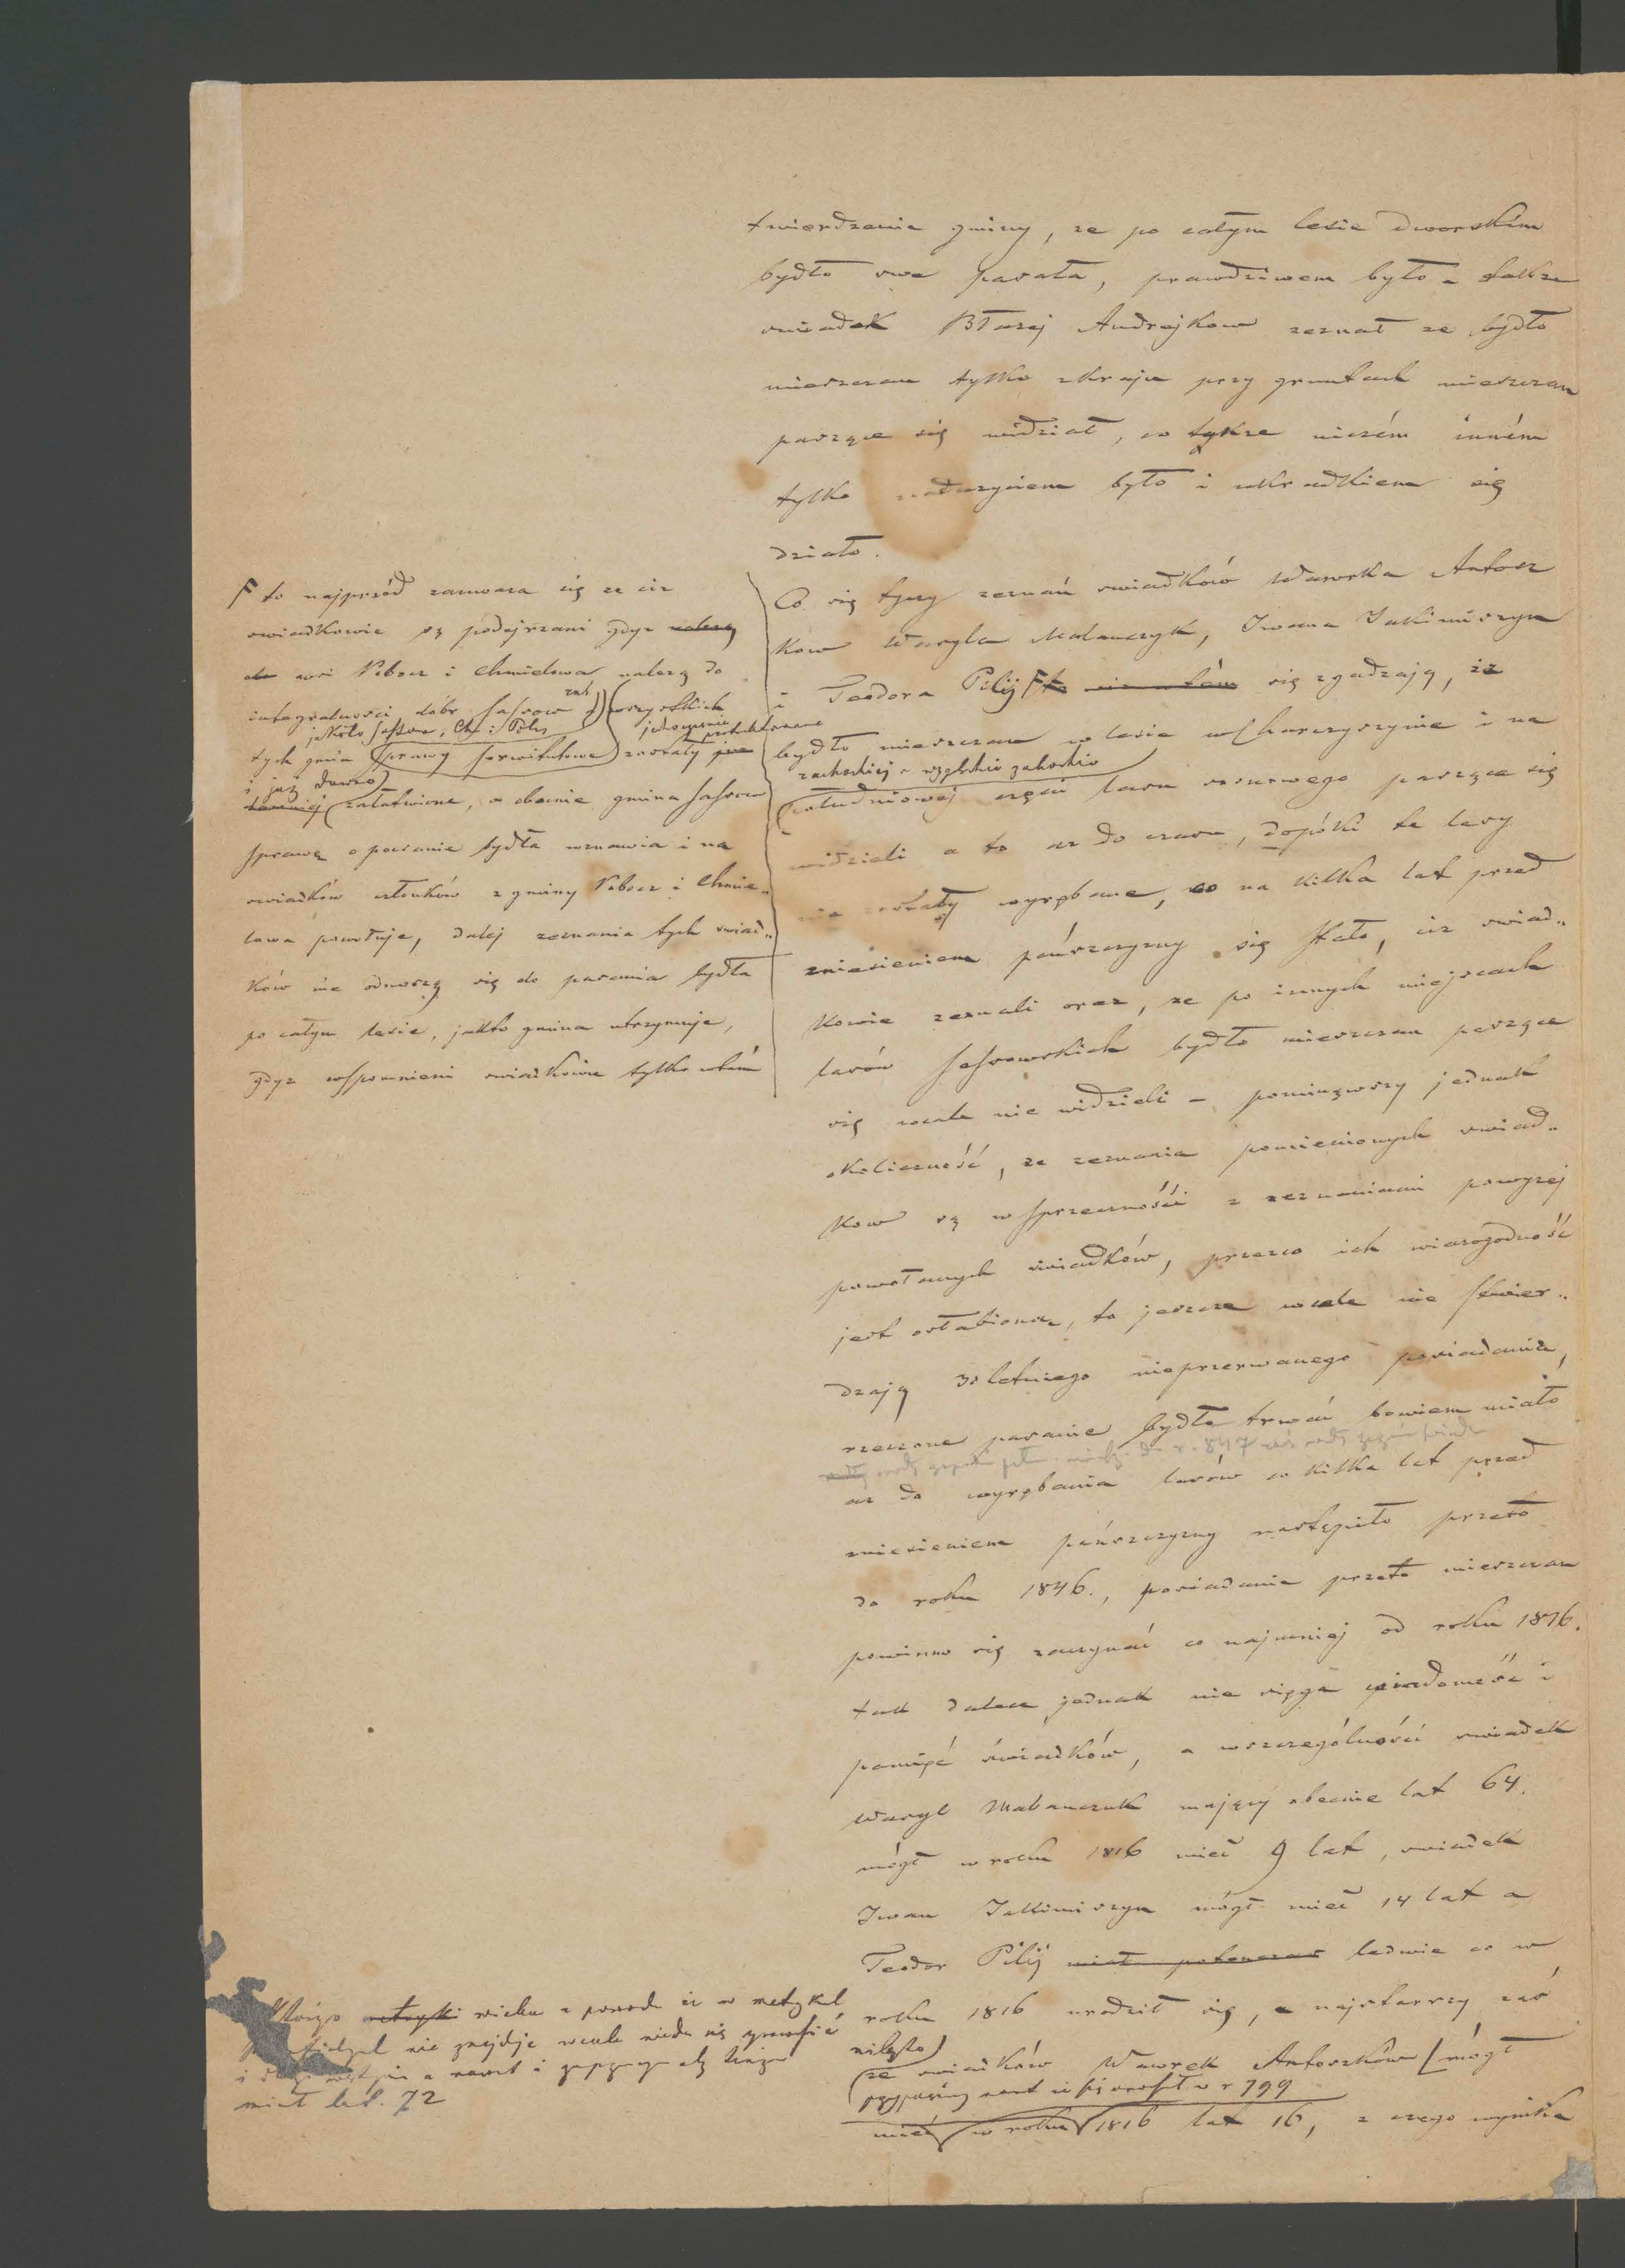 twierdzenie gminy, ze po całym lesie dworskim
bydło swe pasała, prawdziwem było - także
swiadek Błazej Andrejkow zeznał ze bydło
mieszczan tylko zkraju przy gruntach mieszczan
paszące się widział, co także niczém inném
tylko naduzyciem było i ukradkiem się
działo.
Co się tyczy zeznań swiadków Wawrka Antosz
kow Wasyla Malanczyk, Iwana Jakimiszyn
i Teodora Pilij się zgadzają, że
bydło mieszczan w lesie w Charczyszynie i na
zachodniej - względnie
południowej częsci lasu sosnowego pasące się
widzieli a to az do czasu, dopóki te lasy
nie zostały wyrębane, co na kilka lat przed
zniesieniem pańszczyzny się stało, ciz swiad„
kowie zeznali oraz, ze po innych miejscach
lasów Sassowskich bydło mieszczan pasące
się wcale nie widzieli - pominąwszy jednak
okoliczność, ze zeznania pomienionych swiad„
kow są w sprzeczności z zeznaniami powyzej
powołanych swiadków, przezco ich wiarogodność
jest osłabiona, to jeszcze wcale nie stwier„
dzają 30 letniego nieprzerwanego posiadania,
rzeczone pasanie bydła trwać bowiem miało
az do wyrębania lasów co kilka lat przed
zniesieniem pańszczyzny nastąpiło przeto
do roku 1846., posiadanie przeto mieszczan
powinno się zaczynać co najmniej od roku 1816.
tak dalece jednak nie sięga wiadomość i
pamięć świadków, a wszczególności swiadek
Wasyl Malanczuk mający obecnie lat 64.
mógł w roku 1816 mieć 9 lat, swiadek
Iwan Jakimiszyn mógł mieć 14 lat a
Teodor Pilij miał potenczas ledwie co w
roku 1816 urodził się, a najstarszy zaś
ze swiadków Wawrek Antoszków mógł
mieć w roku 1816 lat 16, z czego wynika
F to najprzód zauwaza się ze ciz
swiadkowie są podejrzani gdyz nalezą
do wsi Kobocz i Chmielowa nalezą do
integralnosci dóbr Sassow zaś wszystkich
tych gmin sprawy serwitutowe zostały
i już dawno
dawniej załatwione, a obecnie gmina Sassow
sprawę o pasanie bydła wznawia i na
swiadków członków z gminy Kobocz i Chmie„
lowa powołuje, dalej zeznania tych swiad„
ków nie odnoszą się do pasania bydła
po całym lesie, jakto gmina utrzymuje,
gdyz wspomnieni swiadkowie tylko
wieku z powodu iz w metrykal
nie znajduje wcale nieda się sprawdzić
miał lat. 72